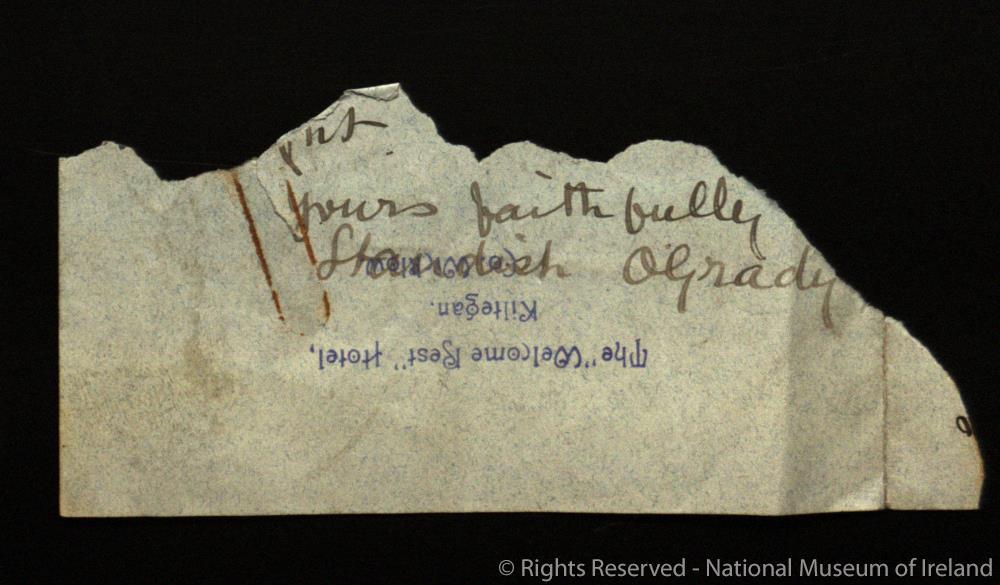 yours faithfully
Standish OGrady
The "Welcome Rest" Hotel,
Kiltegan.
Co. Wicklow
© Rights Reserved - National Museum of Ireland